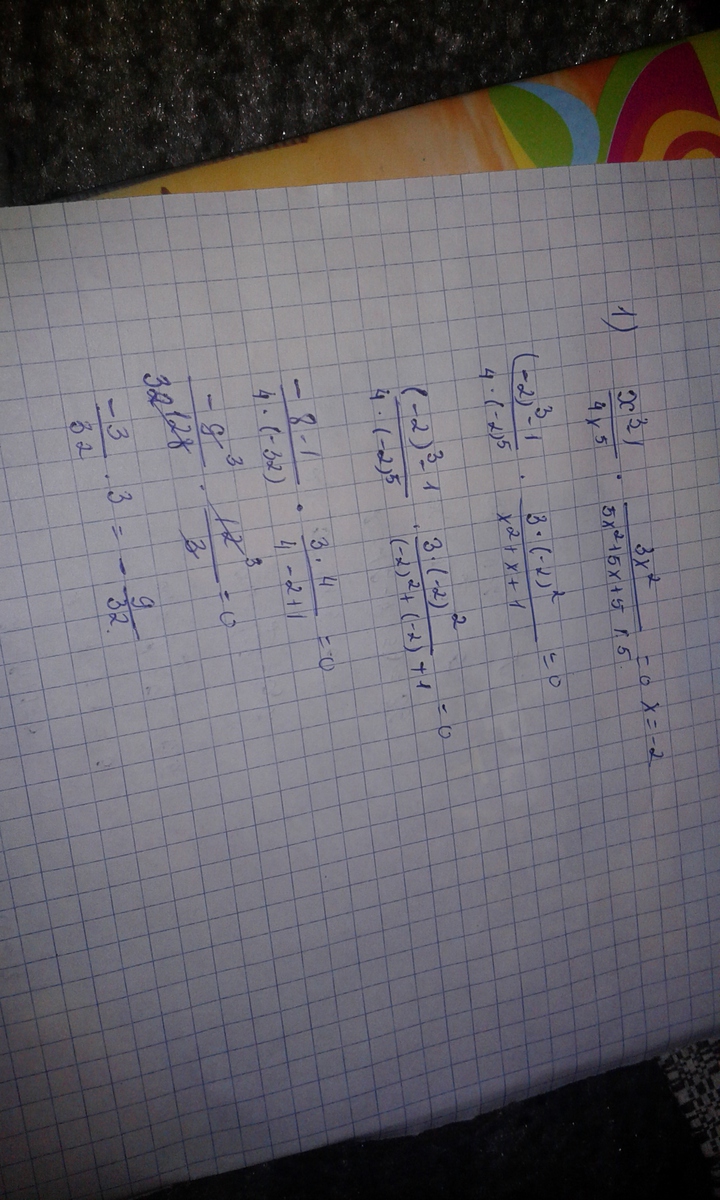 1) (x³ 1)/(4x⁵) · (3x²)/(5x²+5x+5 | 5) = 0 x = -2
((-2)³-1)/(4·(-2)⁵) · (3·(-2)²)/(x²+x+1) = 0
((-2)³-1)/(4·(-2)⁵) · (3·(-2)²)/((-2)²+(-2)+1) = 0
(-8-1)/(4·(-32)) · (3·4)/(4-2+1) = 0
(-9 3)/(32 128) · (12 3)/3 = 0
(-3)/32 · 3 = -9/32